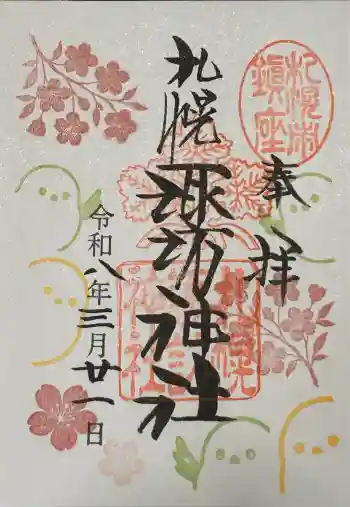 札幌市
鎮座
奉拝
札幌
諏訪神社
令和八年三月廿一日